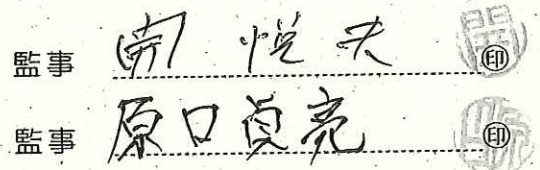 監事 関 悦夫 ㊞
監事 原口貞亮 ㊞